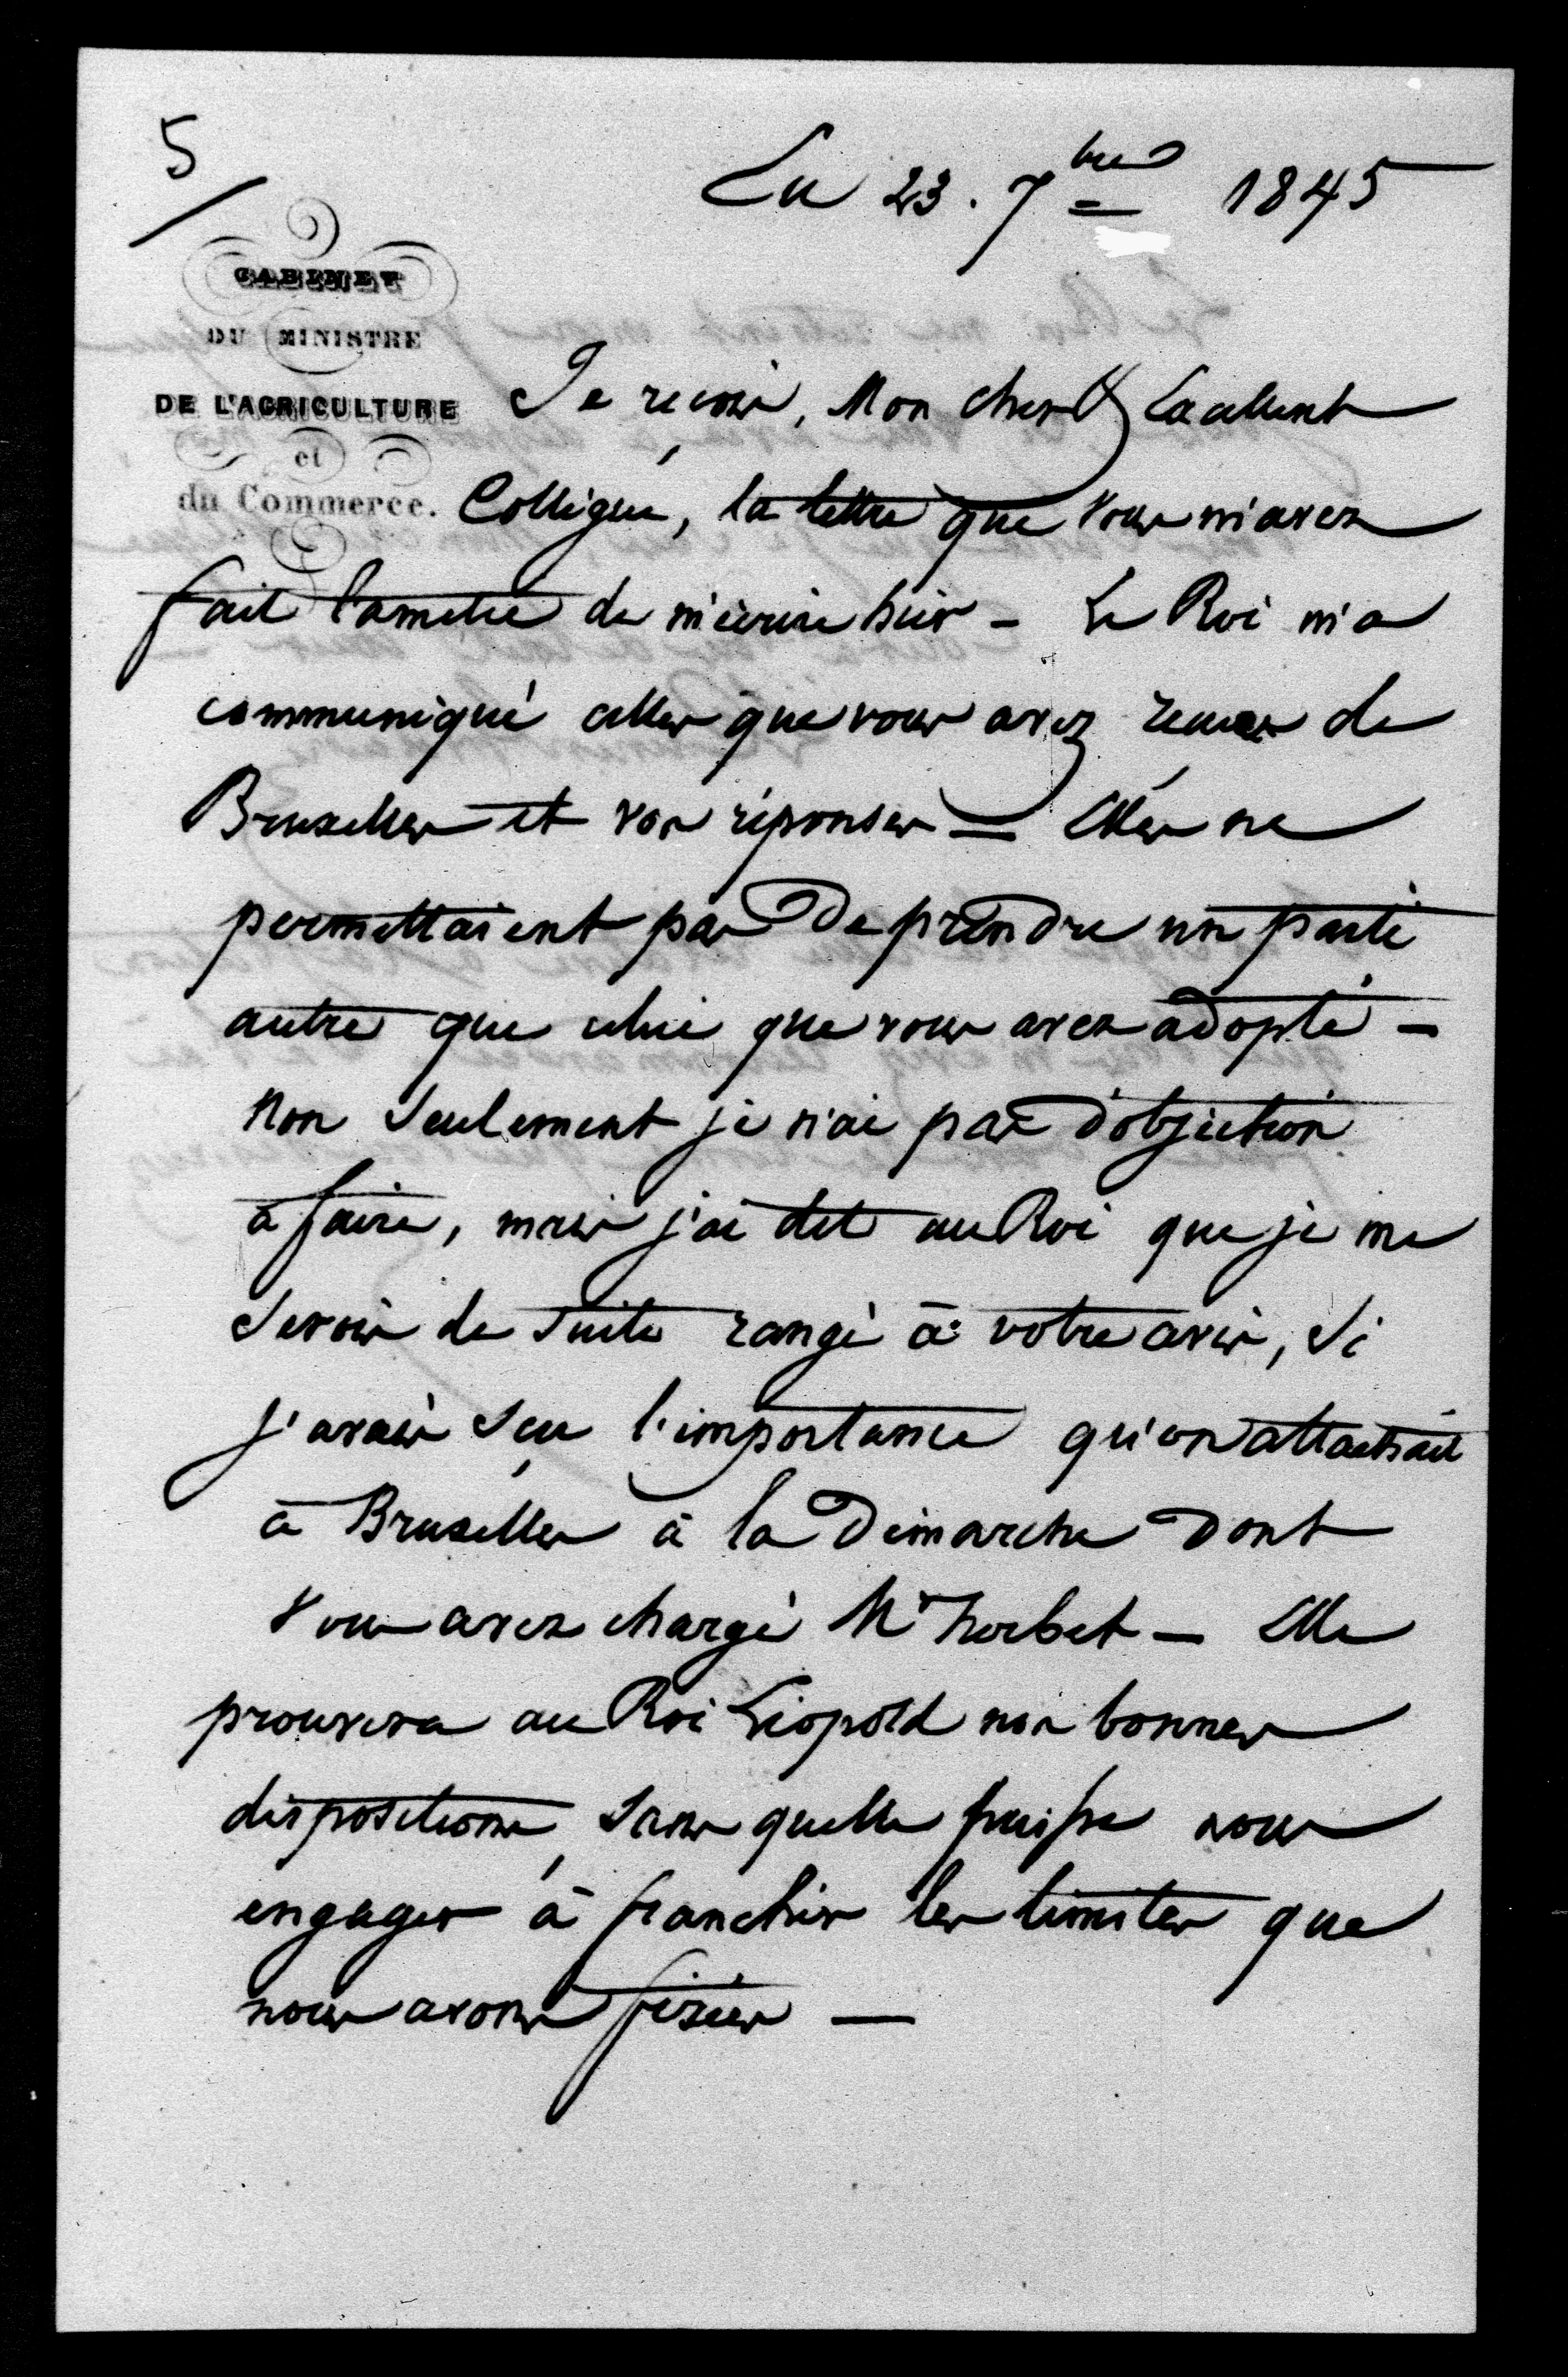 5/
Le 23. 7bre 1845
CABINET
DU MINISTRE
DE L'AGRICULTURE
et
du Commerce.
Je reçois, Mon cher & Excellent
Collègue, la lettre que vous m'avez
fait l'amitié de m'écrire hier - Le Roi m'a
communiqué celles que vous avez reçues de
Bruxelles et vos réponses - Elles ne
permettaient pas de prendre un parti
autre que celui que vous avez adopté -
Non seulement je n'ai pas d'objection
à faire, mais j'ai dit au Roi que je me
serois de suite rangé à votre avis, si
j'avais sçu l'importance qu'on attachait
à Bruxelles à la démarche dont
vous avez chargé Mr - Elle
prouvera au Roi Léopold nos bonnes
dispositions, sans quelle puisse nous
engager à franchir les limites que
nous avons fixées -